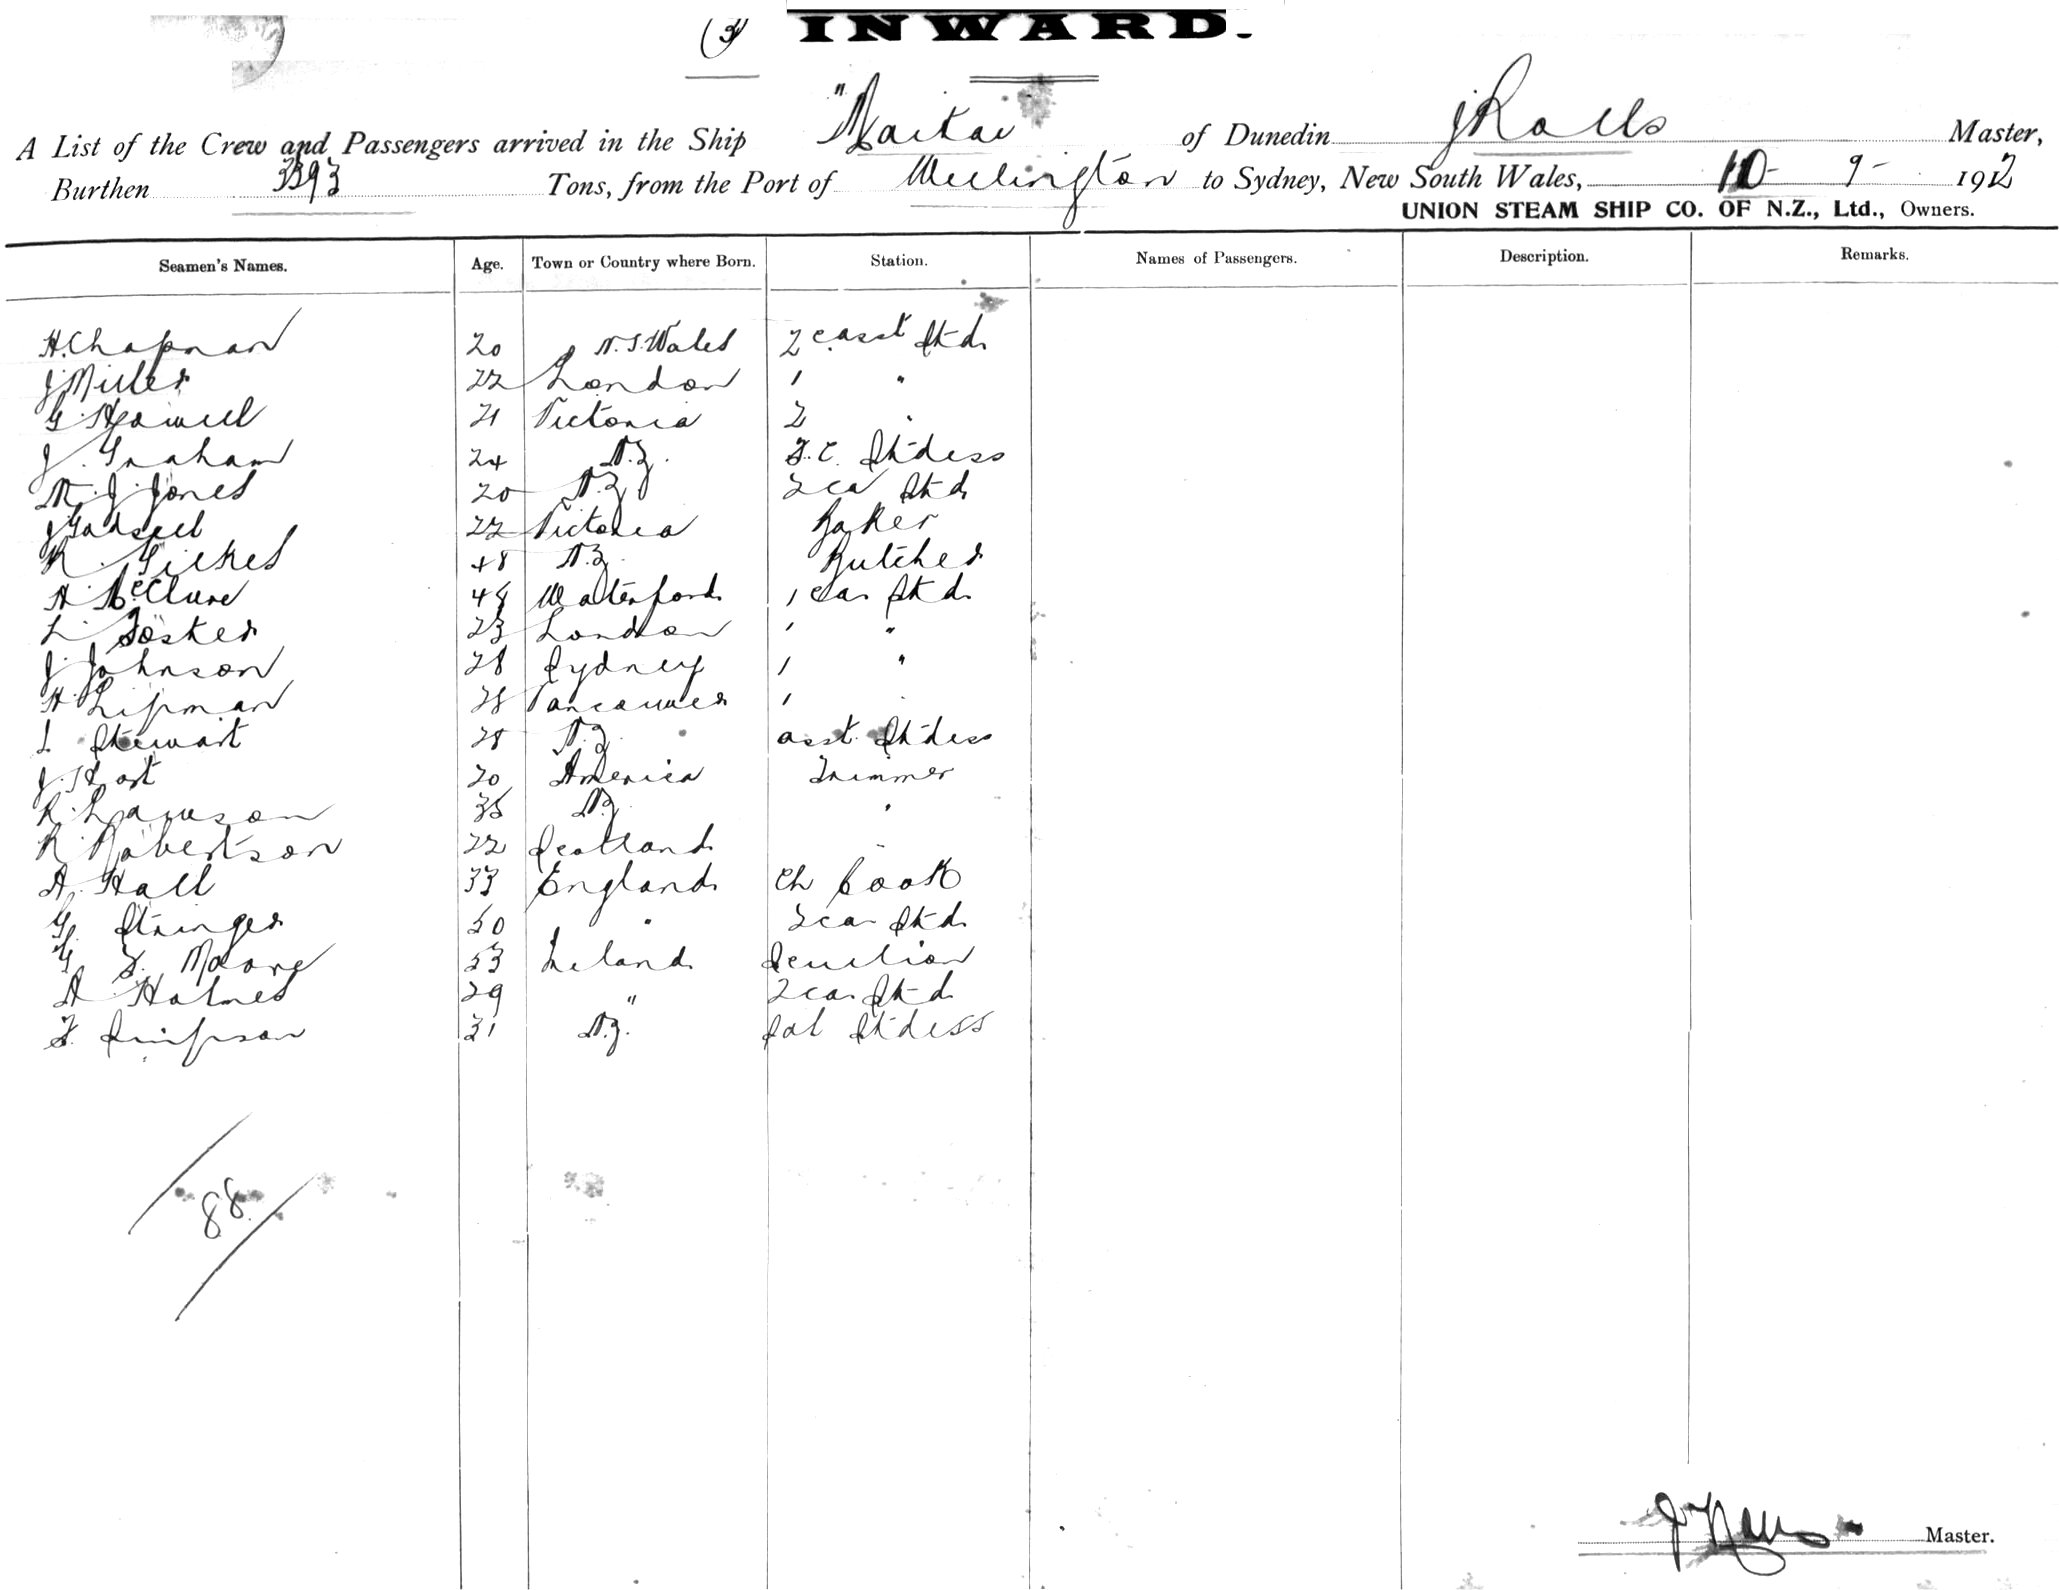 (3) INWARD.
A List of the Crew and Passengers arrived in the Ship "Maitai of Dunedin J Rolls Master,
Burthen 3393 Tons, from the Port of Wellington to Sydney, New South Wales, 10- 9- 1912
UNION STEAM SHIP CO. OF N.Z., Ltd., Owners.
Seamen's Names. Age. Town or Country where Born. Station. Names of Passengers. Description. Remarks.
H. Chapman 20 N.S. Wales 2 c asst Std
J Miller 22 London 1 "
G Howell 21 Victoria 2 "
J. Graham 24 N.Z. F.C. Stdess
M. J. Jones 20 N.Z. 2 ca Std
J 22 Victoria Baker
R. Gilkes 48 N.Z. Butcher
A. McClure 48 Waterford 1 ca. Std
L. Tosker 23 London 1 "
J. Johnson 28 Sydney 1 "
H Lipman 28 Vancouver 1 "
L Stewart 28 N.Z. asst. Stdess
J. Hart 20 America Trimmer
R. Lawson 35 N.Z. "
R. Robertson 22 Scotland "
A. Hall 33 England Ch Cook
G. Stringer 50 " 2 ca. Std
G. S. Moore 53 Ireland Scullion
A Holmes 29 " 2 ca. Std
F. Simpson 31 N.Z. Sal Stdess
88.
J Rolls Master.